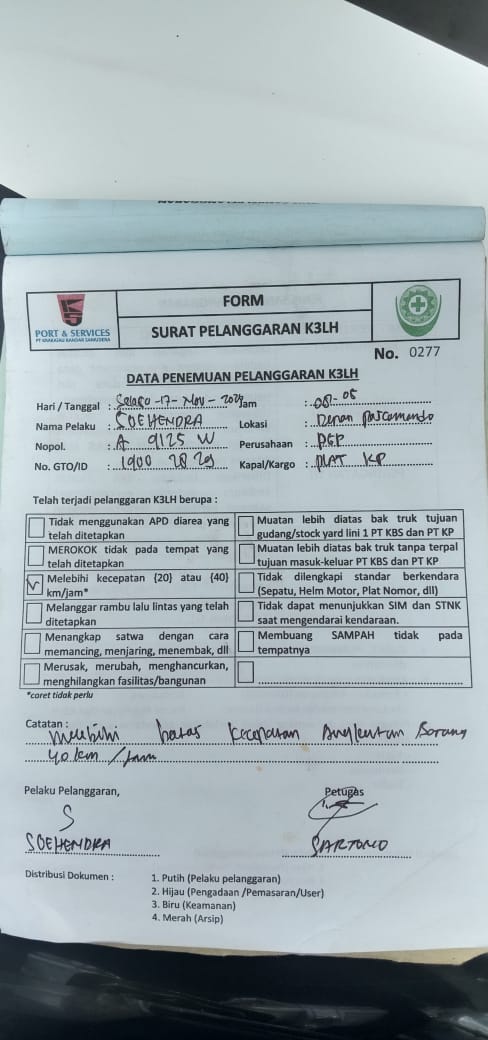 PORT & SERVICES
PT KRAKATAU BANDAR SAMUDERA
FORM
SURAT PELANGGARAN K3LH
No. 0277
DATA PENEMUAN PELANGGARAN K3LH
Hari / Tanggal : -Nov- Jam : 08-05
Nama Pelaku : SOEHENDRA Lokasi : Depan
Nopol. : A 9125 W Perusahaan : PGP
No. GTO/ID : 1900 28 29 Kapal/Kargo : PLAT KP
Telah terjadi pelanggaran K3LH berupa :
Tidak menggunakan APD diarea yang telah ditetapkan
Muatan lebih diatas bak truk tujuan gudang/stock yard lini 1 PT KBS dan PT KP
MEROKOK tidak pada tempat yang telah ditetapkan
Muatan lebih diatas bak truk tanpa terpal tujuan masuk-keluar PT KBS dan PT KP
Melebihi kecepatan {20} atau {40} km/jam*
Tidak dilengkapi standar berkendara (Sepatu, Helm Motor, Plat Nomor, dll)
Melanggar rambu lalu lintas yang telah ditetapkan
Tidak dapat menunjukkan SIM dan STNK saat mengendarai kendaraan.
Menangkap satwa dengan cara memancing, menjaring, menembak, dll
Membuang SAMPAH tidak pada tempatnya
Merusak, merubah, menghancurkan, menghilangkan fasilitas/bangunan
*coret tidak perlu
Catatan : batas kecepatan Angkutan Barang
40 km / Jam
Pelaku Pelanggaran,
Petugas
S
SOEHENDRA
SARTONO
Distribusi Dokumen :
1. Putih (Pelaku pelanggaran)
2. Hijau (Pengadaan /Pemasaran/User)
3. Biru (Keamanan)
4. Merah (Arsip)